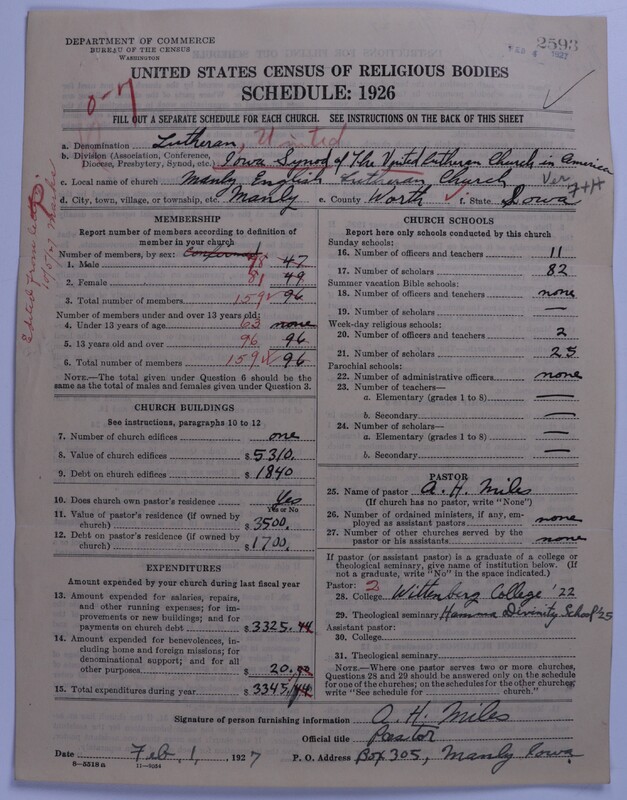 DEPARTMENT OF COMMERCE
BUREAU OF THE CENSUS
WASHINGTON
2593
FEB 4 1927
UNITED STATES CENSUS OF RELIGIOUS BODIES
SCHEDULE: 1926
FILL OUT A SEPARATE SCHEDULE FOR EACH CHURCH. SEE INSTRUCTIONS ON THE BACK OF THIS SHEET
a. Denomination Lutheran, United
b. Division (Association, Conference, Diocese, Presbytery, Synod, etc.) Iowa Synod of The United Lutheran Church in America
c. Local name of church Manly English Lutheran Church Ver
d. City, town, village, or township, etc. Manly e. County Worth f. State Iowa
MEMBERSHIP
Report number of members according to definition of member in your church
Number of members, by sex:
1. Male 78 47
2. Female 81 49
3. Total number of members 159 96
Number of members under and over 13 years old:
4. Under 13 years of age 63 none
5. 13 years old and over 96 96
6. Total number of members 159 96
NOTE.—The total given under Question 6 should be the same as the total of males and females given under Question 3.
CHURCH BUILDINGS
See instructions, paragraphs 10 to 12
7. Number of church edifices one
8. Value of church edifices $ 5310.
9. Debt on church edifices $ 1840
10. Does church own pastor's residence Yes
Yes or No
11. Value of pastor's residence (if owned by church) $ 3500.
12. Debt on pastor's residence (if owned by church) $ 1700.
EXPENDITURES
Amount expended by your church during last fiscal year
13. Amount expended for salaries, repairs, and other running expenses; for improvements or new buildings; and for payments on church debt $ 3325.44
14. Amount expended for benevolences, including home and foreign missions; for denominational support; and for all other purposes $ 20.
15. Total expenditures during year $ 3345.44
CHURCH SCHOOLS
Report here only schools conducted by this church
Sunday schools:
16. Number of officers and teachers 11
17. Number of scholars 82
Summer vacation Bible schools:
18. Number of officers and teachers none
19. Number of scholars —
Week-day religious schools:
20. Number of officers and teachers 2
21. Number of scholars 25
Parochial schools:
22. Number of administrative officers none
23. Number of teachers—
a. Elementary (grades 1 to 8) —
b. Secondary —
24. Number of scholars—
a. Elementary (grades 1 to 8) —
b. Secondary —
PASTOR
25. Name of pastor A. H. Miles
(If church has no pastor, write "None")
26. Number of ordained ministers, if any, employed as assistant pastors none
27. Number of other churches served by the pastor or his assistants none
If pastor (or assistant pastor) is a graduate of a college or theological seminary, give name of institution below. (If not a graduate, write "No" in the space indicated.)
Pastor: 2
28. College Wittenberg College '22
29. Theological seminary Hamma Divinity School '25
Assistant pastor:
30. College
31. Theological seminary
NOTE.—Where one pastor serves two or more churches, Questions 28 and 29 should be answered only on the schedule for one of the churches; on the schedules for the other churches, write "See schedule for church."
Signature of person furnishing information A. H. Miles
Official title Pastor
Date Feb. 1, 1927 P. O. Address Box 305, Manly Iowa
8-5518a
11-9034